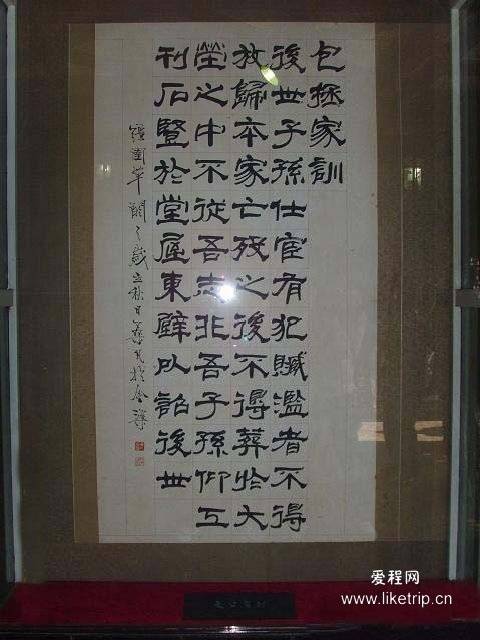 包拯家訓
後世子孫仕宦有犯贓濫者不得
放歸本家亡殁之後不得葬於大
塋之中不從吾志非吾子孫仰工
刊石豎於堂屋東壁以詔後世
歲立秋日
爱程网
www.liketrip.cn